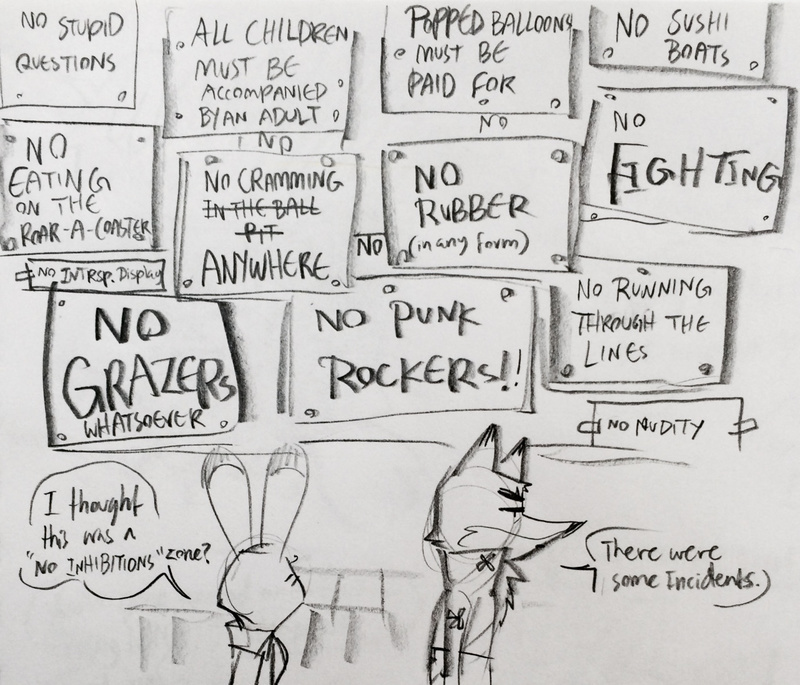 NO STUPID
QUESTIONS
ALL CHILDREN
MUST BE
ACCOMPANIED
BY AN ADULT
POPPED BALLOONS
MUST BE
PAID FOR
NO SUSHI
BOATS
NO
EATING
ON THE
ROAR-A-COASTER
NO
NO CRAMMING
IN THE BALL
PIT
ANYWHERE
NO
NO
RUBBER
(in any form)
NO
FIGHTING
NO
NO INTRSP. Display
NO
GRAZERS
WHATSOEVER
NO PUNK
ROCKERS!!
NO RUNNING
THROUGH THE
LINES
NO NUDITY
I thought
this was a
"NO INHIBITIONS" zone?
There were
some Incidents.